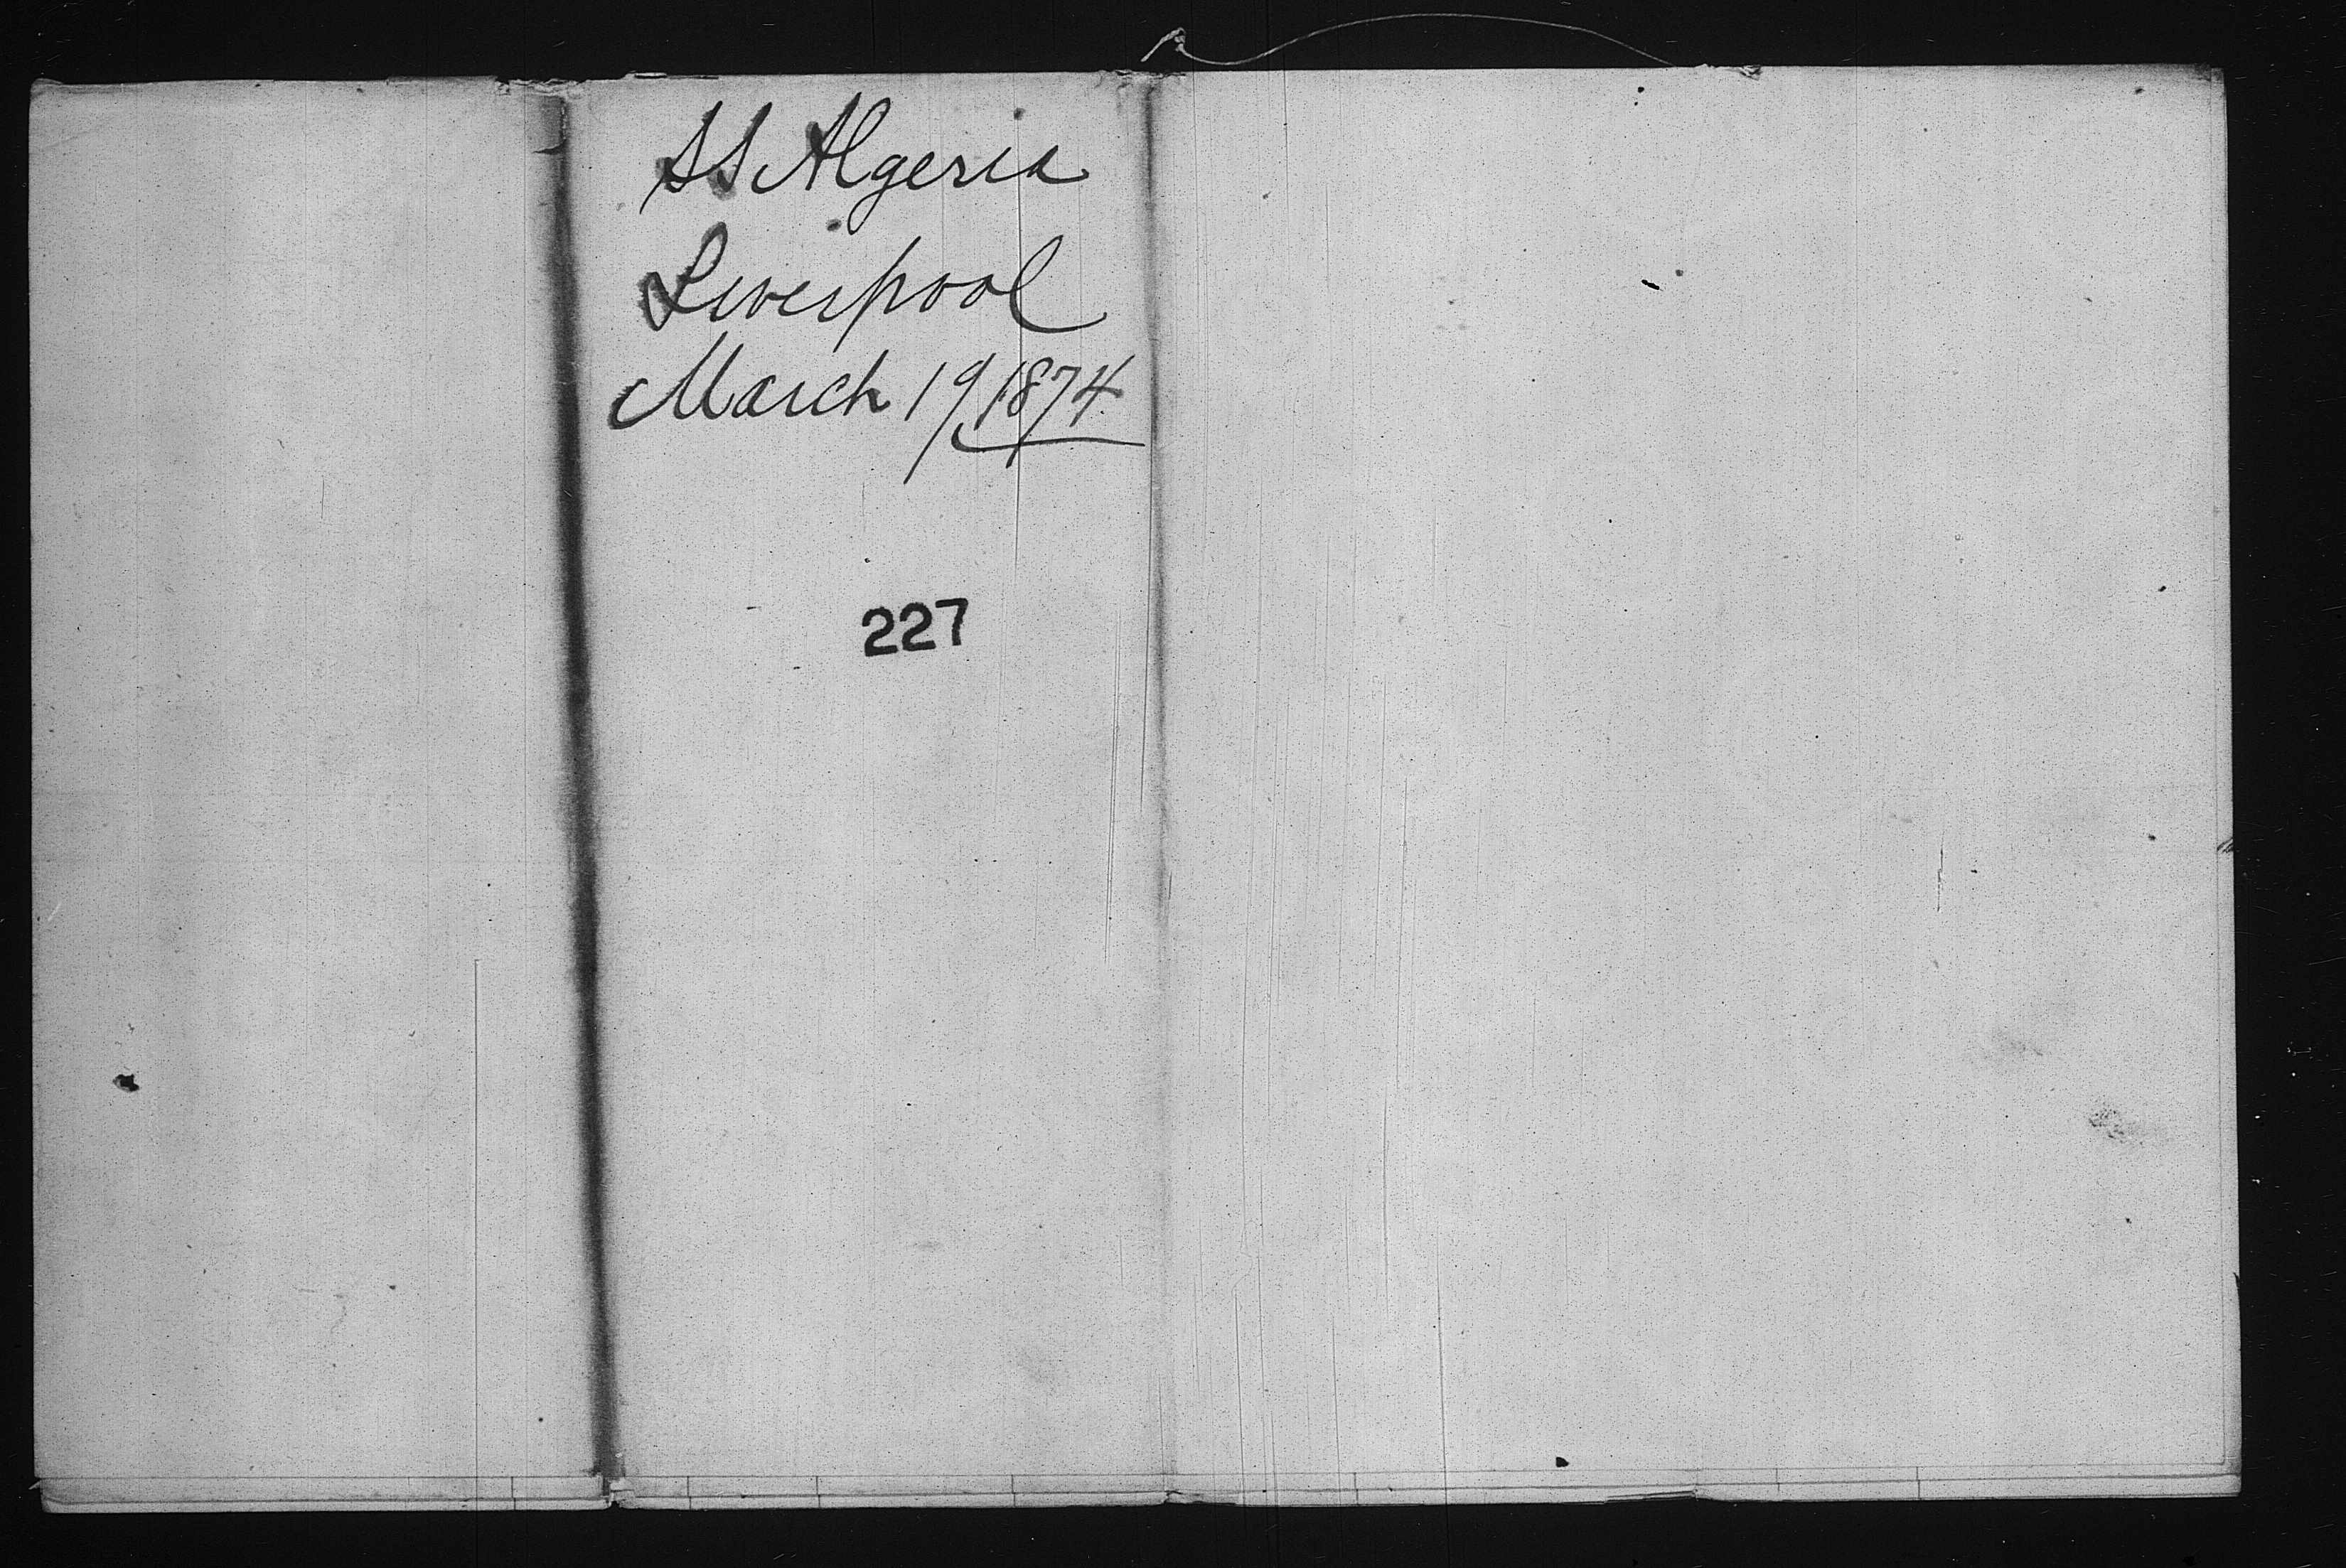 SS Algeria
Liverpool
March 19 1874
227